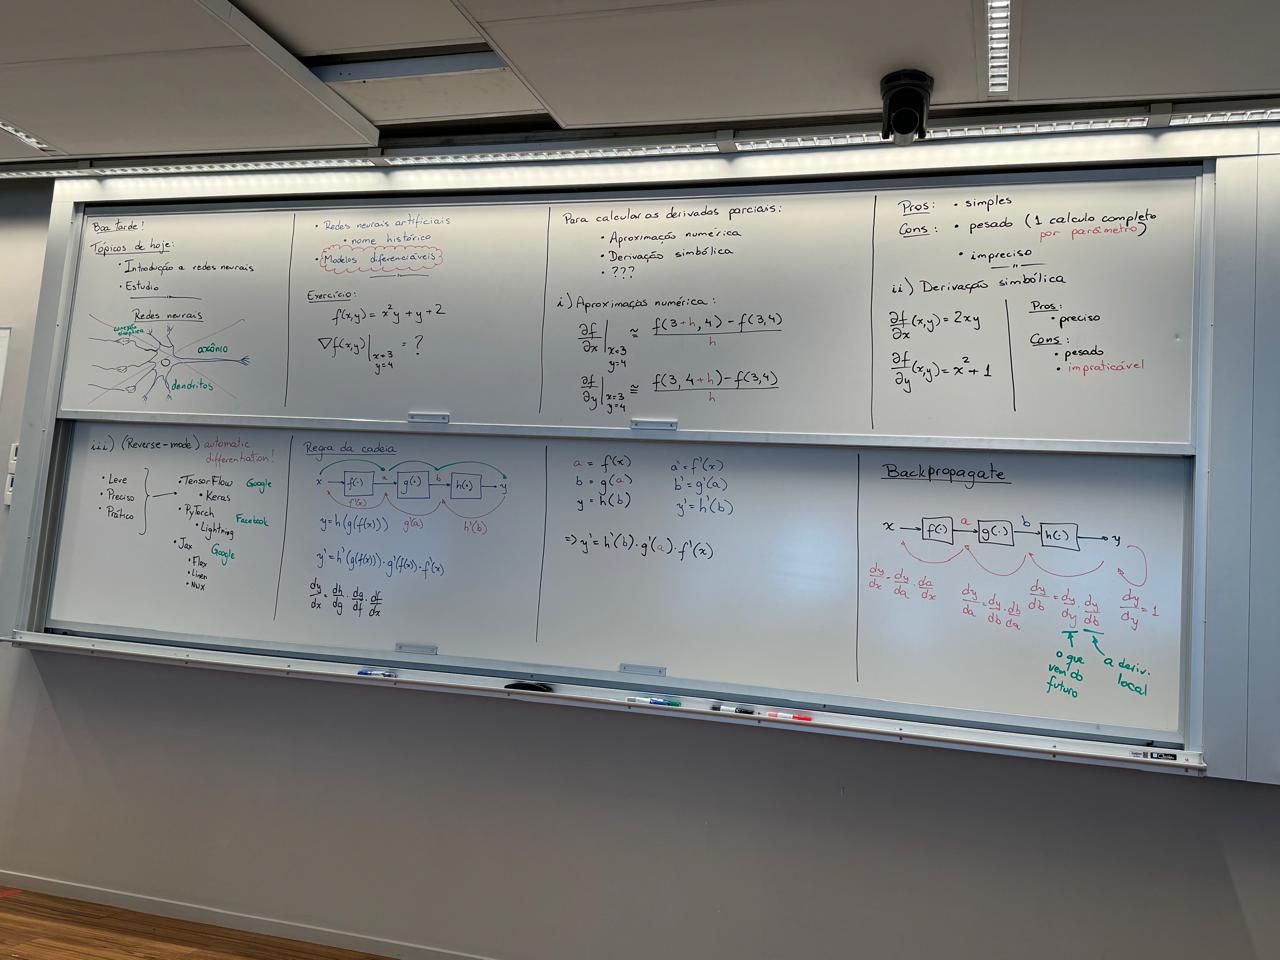 Boa tarde!
Tópicos de hoje:
• Introdução a redes neurais
• Estudio
Redes neurais
conexão sináptica
axônio
dendritos
• Redes neurais artificiais
• nome histórico
• Modelos diferenciáveis
Exercício:
f(x,y) = x²y + y + 2
∇f(x,y)|x=3 y=4 = ?
Para calcular as derivadas parciais:
• Aproximação numérica
• Derivação simbólica
• ???
i) Aproximação numérica:
∂f/∂x |x=3 y=4 ≅ (f(3+h, 4) - f(3,4))/h
∂f/∂y |x=3 y=4 ≅ (f(3, 4+h) - f(3,4))/h
Pros: • simples
Cons: • pesado (1 calculo completo
por parâmetro)
• impreciso
ii) Derivação simbólica
∂f/∂x (x,y) = 2xy
∂f/∂y (x,y) = x² + 1
Pros:
• preciso
Cons:
• pesado
• impraticável
iii) (Reverse-mode) automatic
differentiation!
• Leve
• Preciso
• Prático
• TensorFlow Google
• Keras
• PyTorch Facebook
• Lightning
• Jax Google
• Flax
• Linen
• NNX
Regra da cadeia
x f(·) a g(·) b h(·) y
f'(x) g'(a) h'(b)
y = h(g(f(x)))
y' = h'(g(f(x)))·g'(f(x))·f'(x)
dy/dx = dh/dg · dg/df · df/dx
a = f(x) a' = f'(x)
b = g(a) b' = g'(a)
y = h(b) y' = h'(b)
=> y' = h'(b)·g'(a)·f'(x)
Backpropagate
x f(·) a g(·) b h(·) y
dy/dx = dy/da · da/dx
dy/da = dy/db · db/da
dy/db = dy/dy · dy/db
dy/dy = 1
o que
vem do
futuro
a deriv.
local